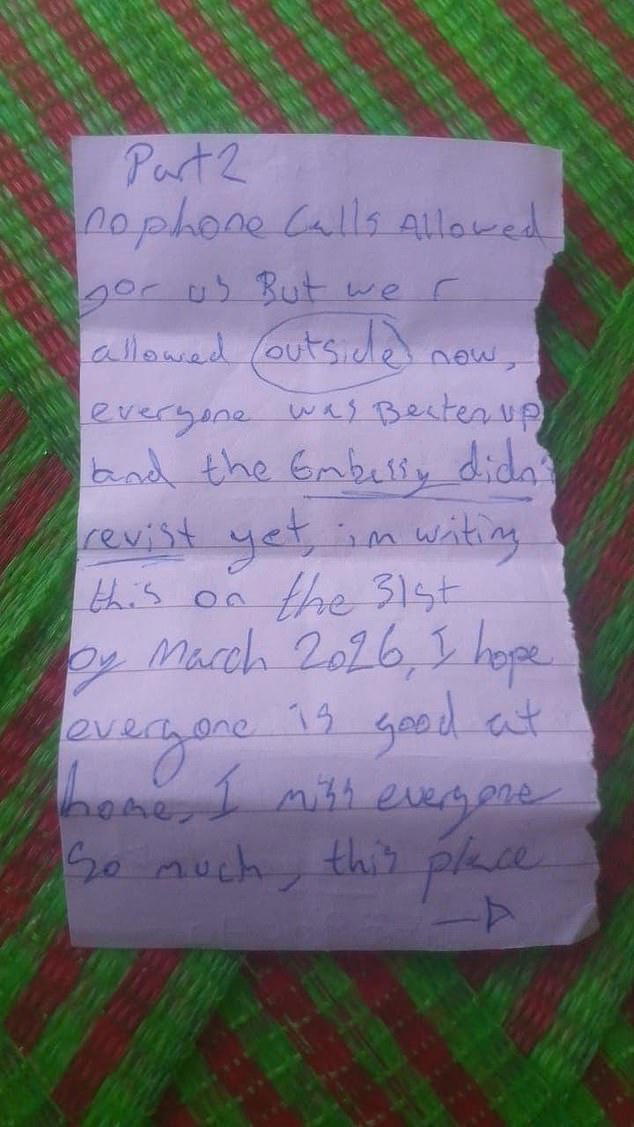 Part 2
no phone Calls Allowed
gor us But we r
allowed outside now,
everyone was Beaten up
and the Embessy didn'
revist yet, im writing
this on the 31st
oy March 2026, I hope
everyone is good at
home, I miss everyone
So much, this place